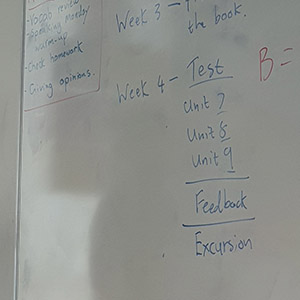 Vocab review
Monday
warm-up
- Check homework
- Giving opinions.
Week 3 -
the book.
Week 4 - Test
Unit 7
Unit 8
Unit 9
Feedback
Excursion
B =